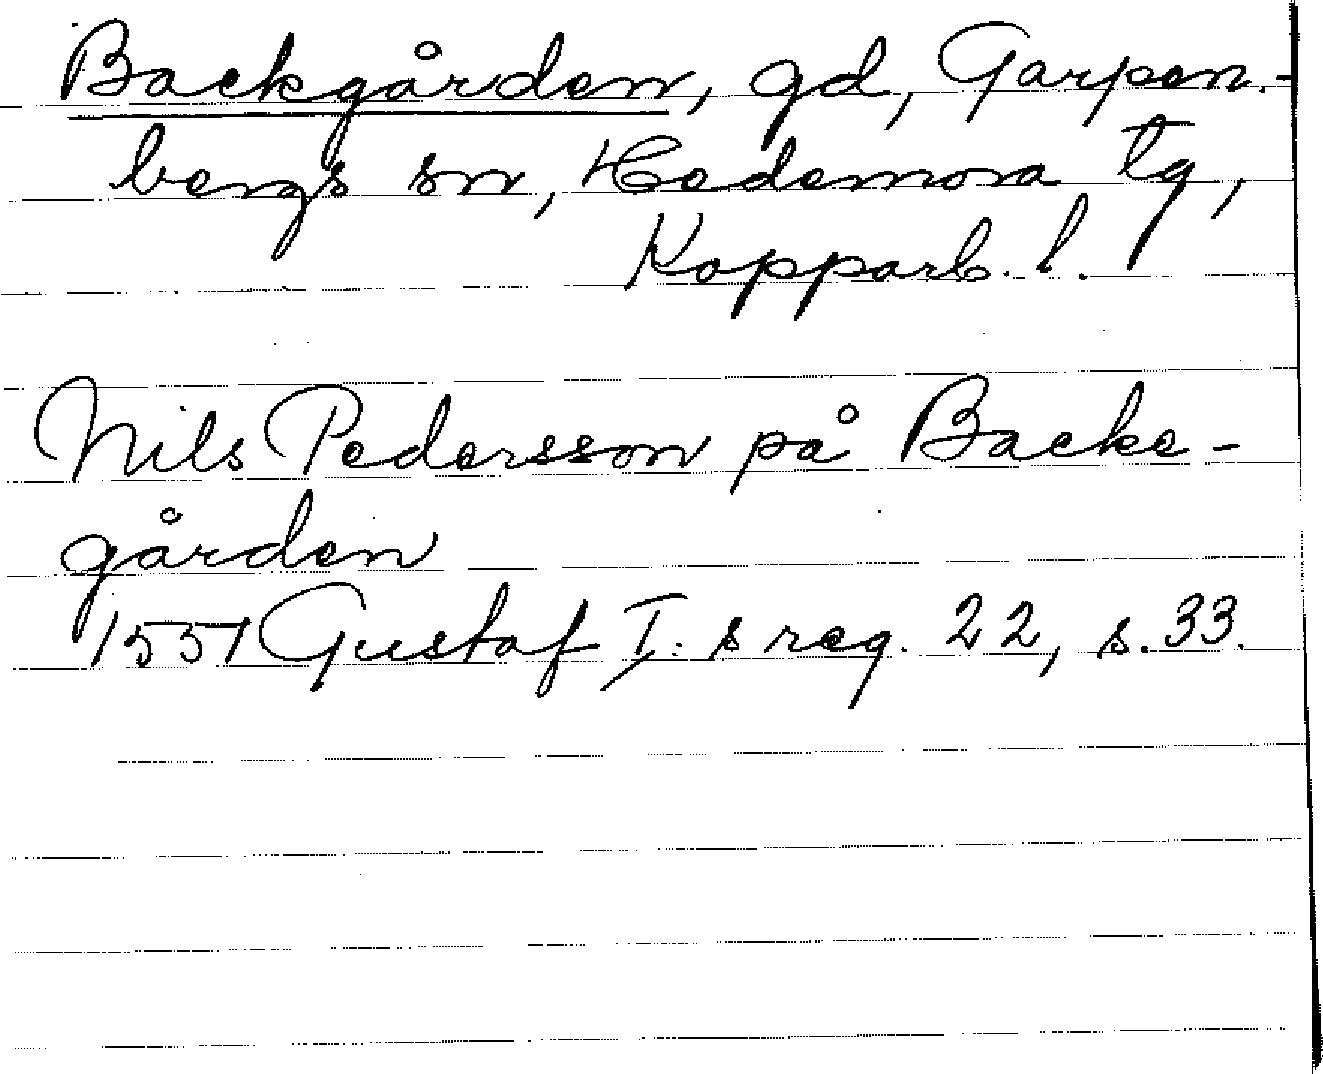 Backgården, gd, Garpen-
bergs sn, Hedemora tg,
Kopparb. l.
Nils Pedersson på Backe-
gården
1551 Gustaf I:s reg. 22, s. 33.